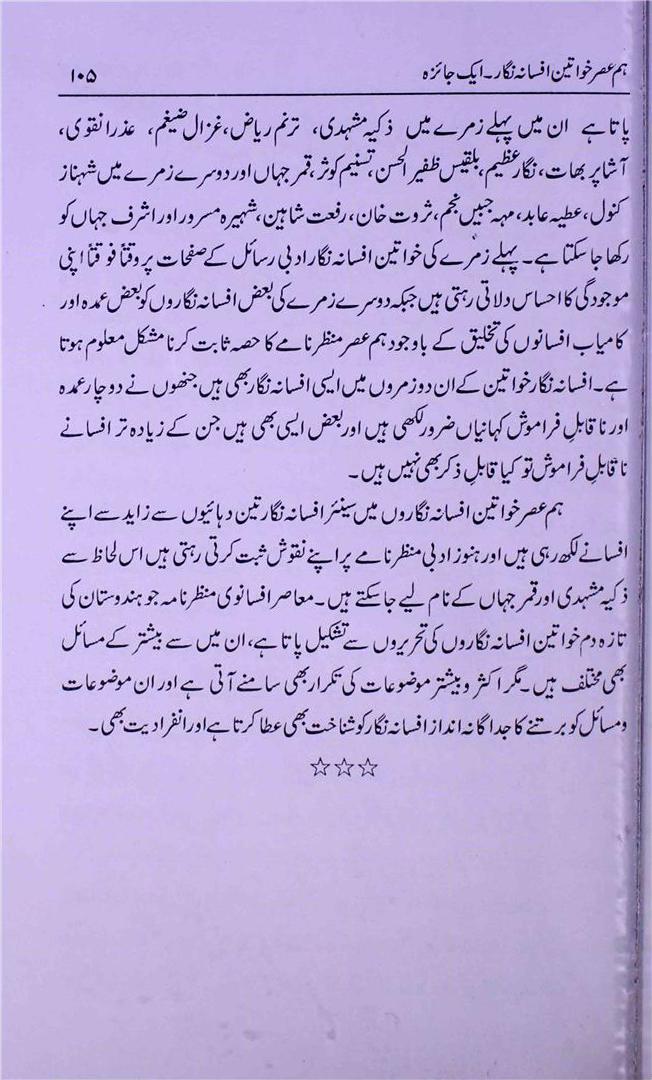 ہم عصر خواتین افسانہ نگار۔ ایک جائزہ ۱۰۵
پاتا ہے ان میں پہلے زمرے میں ذکیہ مشہدی، ترنم ریاض، غزال ضیغم، عذرا نقوی،
آشا پربھات، نگار عظیم، بلقیس ظفیر الحسن، تسنیم کوثر، قمر جہاں اور دوسرے زمرے میں شہناز
کنول، عطیہ عابد، مہہ جبیں نجم، ثروت خان، رفعت شاہین، شہیرہ مسرور اور اشرف جہاں کو
رکھا جا سکتا ہے۔ پہلے زمرے کی خواتین افسانہ نگار ادبی رسائل کے صفحات پر وقتاً فوقتاً اپنی
موجودگی کا احساس دلاتی رہتی ہیں جبکہ دوسرے زمرے کی بعض افسانہ نگاروں کو بعض عمدہ اور
کامیاب افسانوں کی تخلیق کے باوجود ہم عصر منظرنامے کا حصہ ثابت کرنا مشکل معلوم ہوتا
ہے۔ افسانہ نگار خواتین کے ان دو زمروں میں ایسی افسانہ نگار بھی ہیں جنھوں نے دو چار عمدہ
اور ناقابلِ فراموش کہانیاں ضرور لکھی ہیں اور بعض ایسی بھی ہیں جن کے زیادہ تر افسانے
ناقابلِ فراموش تو کیا قابلِ ذکر بھی نہیں ہیں۔
ہم عصر خواتین افسانہ نگاروں میں سینئر افسانہ نگار تین دہائیوں سے زاید سے اپنے
افسانے لکھ رہی ہیں اور ہنوز ادبی منظرنامے پر اپنے نقوش ثبت کرتی رہتی ہیں اس لحاظ سے
ذکیہ مشہدی اور قمر جہاں کے نام لیے جا سکتے ہیں۔ معاصر افسانوی منظرنامہ جو ہندوستان کی
تازہ دم خواتین افسانہ نگاروں کی تحریروں سے تشکیل پاتا ہے، ان میں سے بیشتر کے مسائل
بھی مختلف ہیں۔ مگر اکثر و بیشتر موضوعات کی تکرار بھی سامنے آتی ہے اور ان موضوعات
و مسائل کو برتنے کا جداگانہ انداز افسانہ نگار کو شناخت بھی عطا کرتا ہے اور انفرادیت بھی۔
☆☆☆